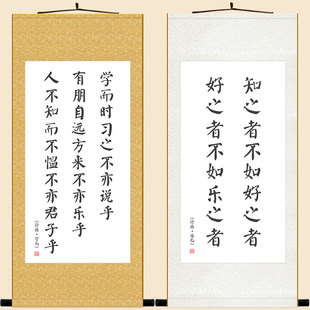 学而时习之不亦说乎
有朋自远方来不亦乐乎
人不知而不愠不亦君子乎
知之者不如好之者
好之者不如乐之者